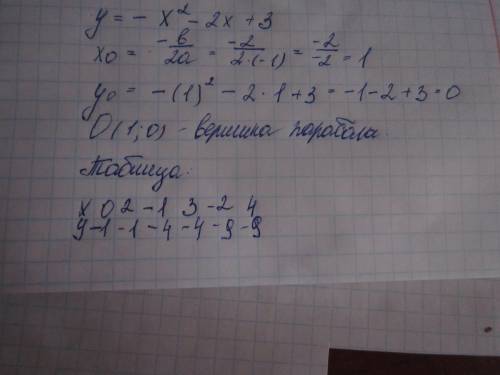 y = - x² - 2x + 3
x₀ = -в/2a = -2/2·(-1) = -2/-2 = 1
y₀ = -(1)² - 2·1 + 3 = -1 - 2 + 3 = 0
O(1;0) - вершина парабола.
Таблица:
x 0 2 -1 3 -2 4
y -1 -1 -4 -4 -9 -9